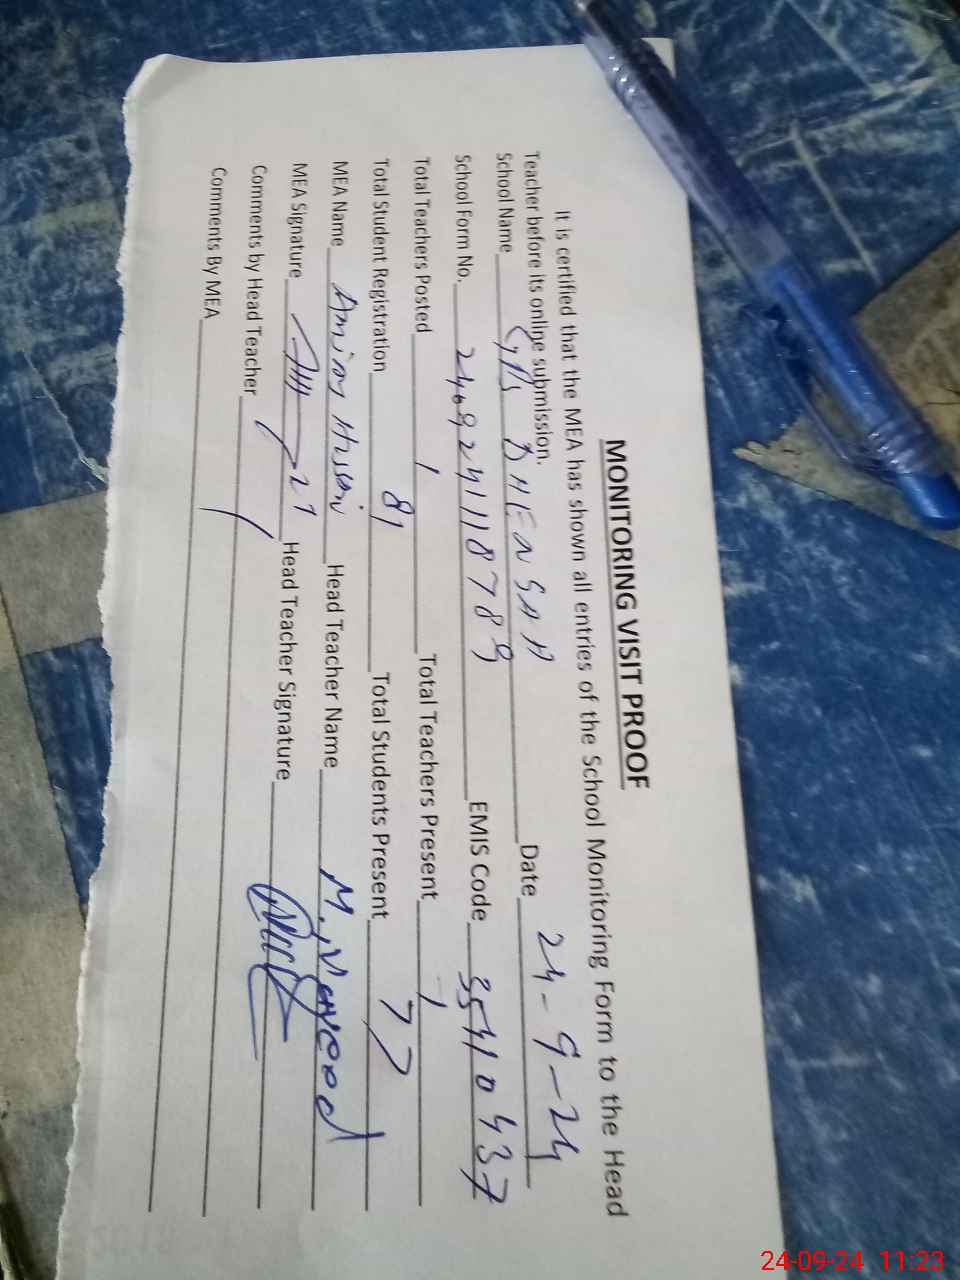 MONITORING VISIT PROOF
It is certified that the MEA has shown all entries of the School Monitoring Form to the Head
Teacher before its online submission.
School Name GPS DHENSAH Date 24-9-24
School Form No. 2409241118789 EMIS Code 35410437
Total Teachers Posted 1 Total Teachers Present 1
Total Student Registration 81 Total Students Present 77
MEA Name Head Teacher Name
MEA Signature Head Teacher Signature
Comments by Head Teacher
Comments By MEA
24-09-24 11:23